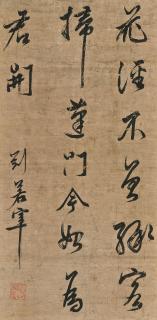 花徑不曾緣客
掃蓬門今始為
君開
劉若宰